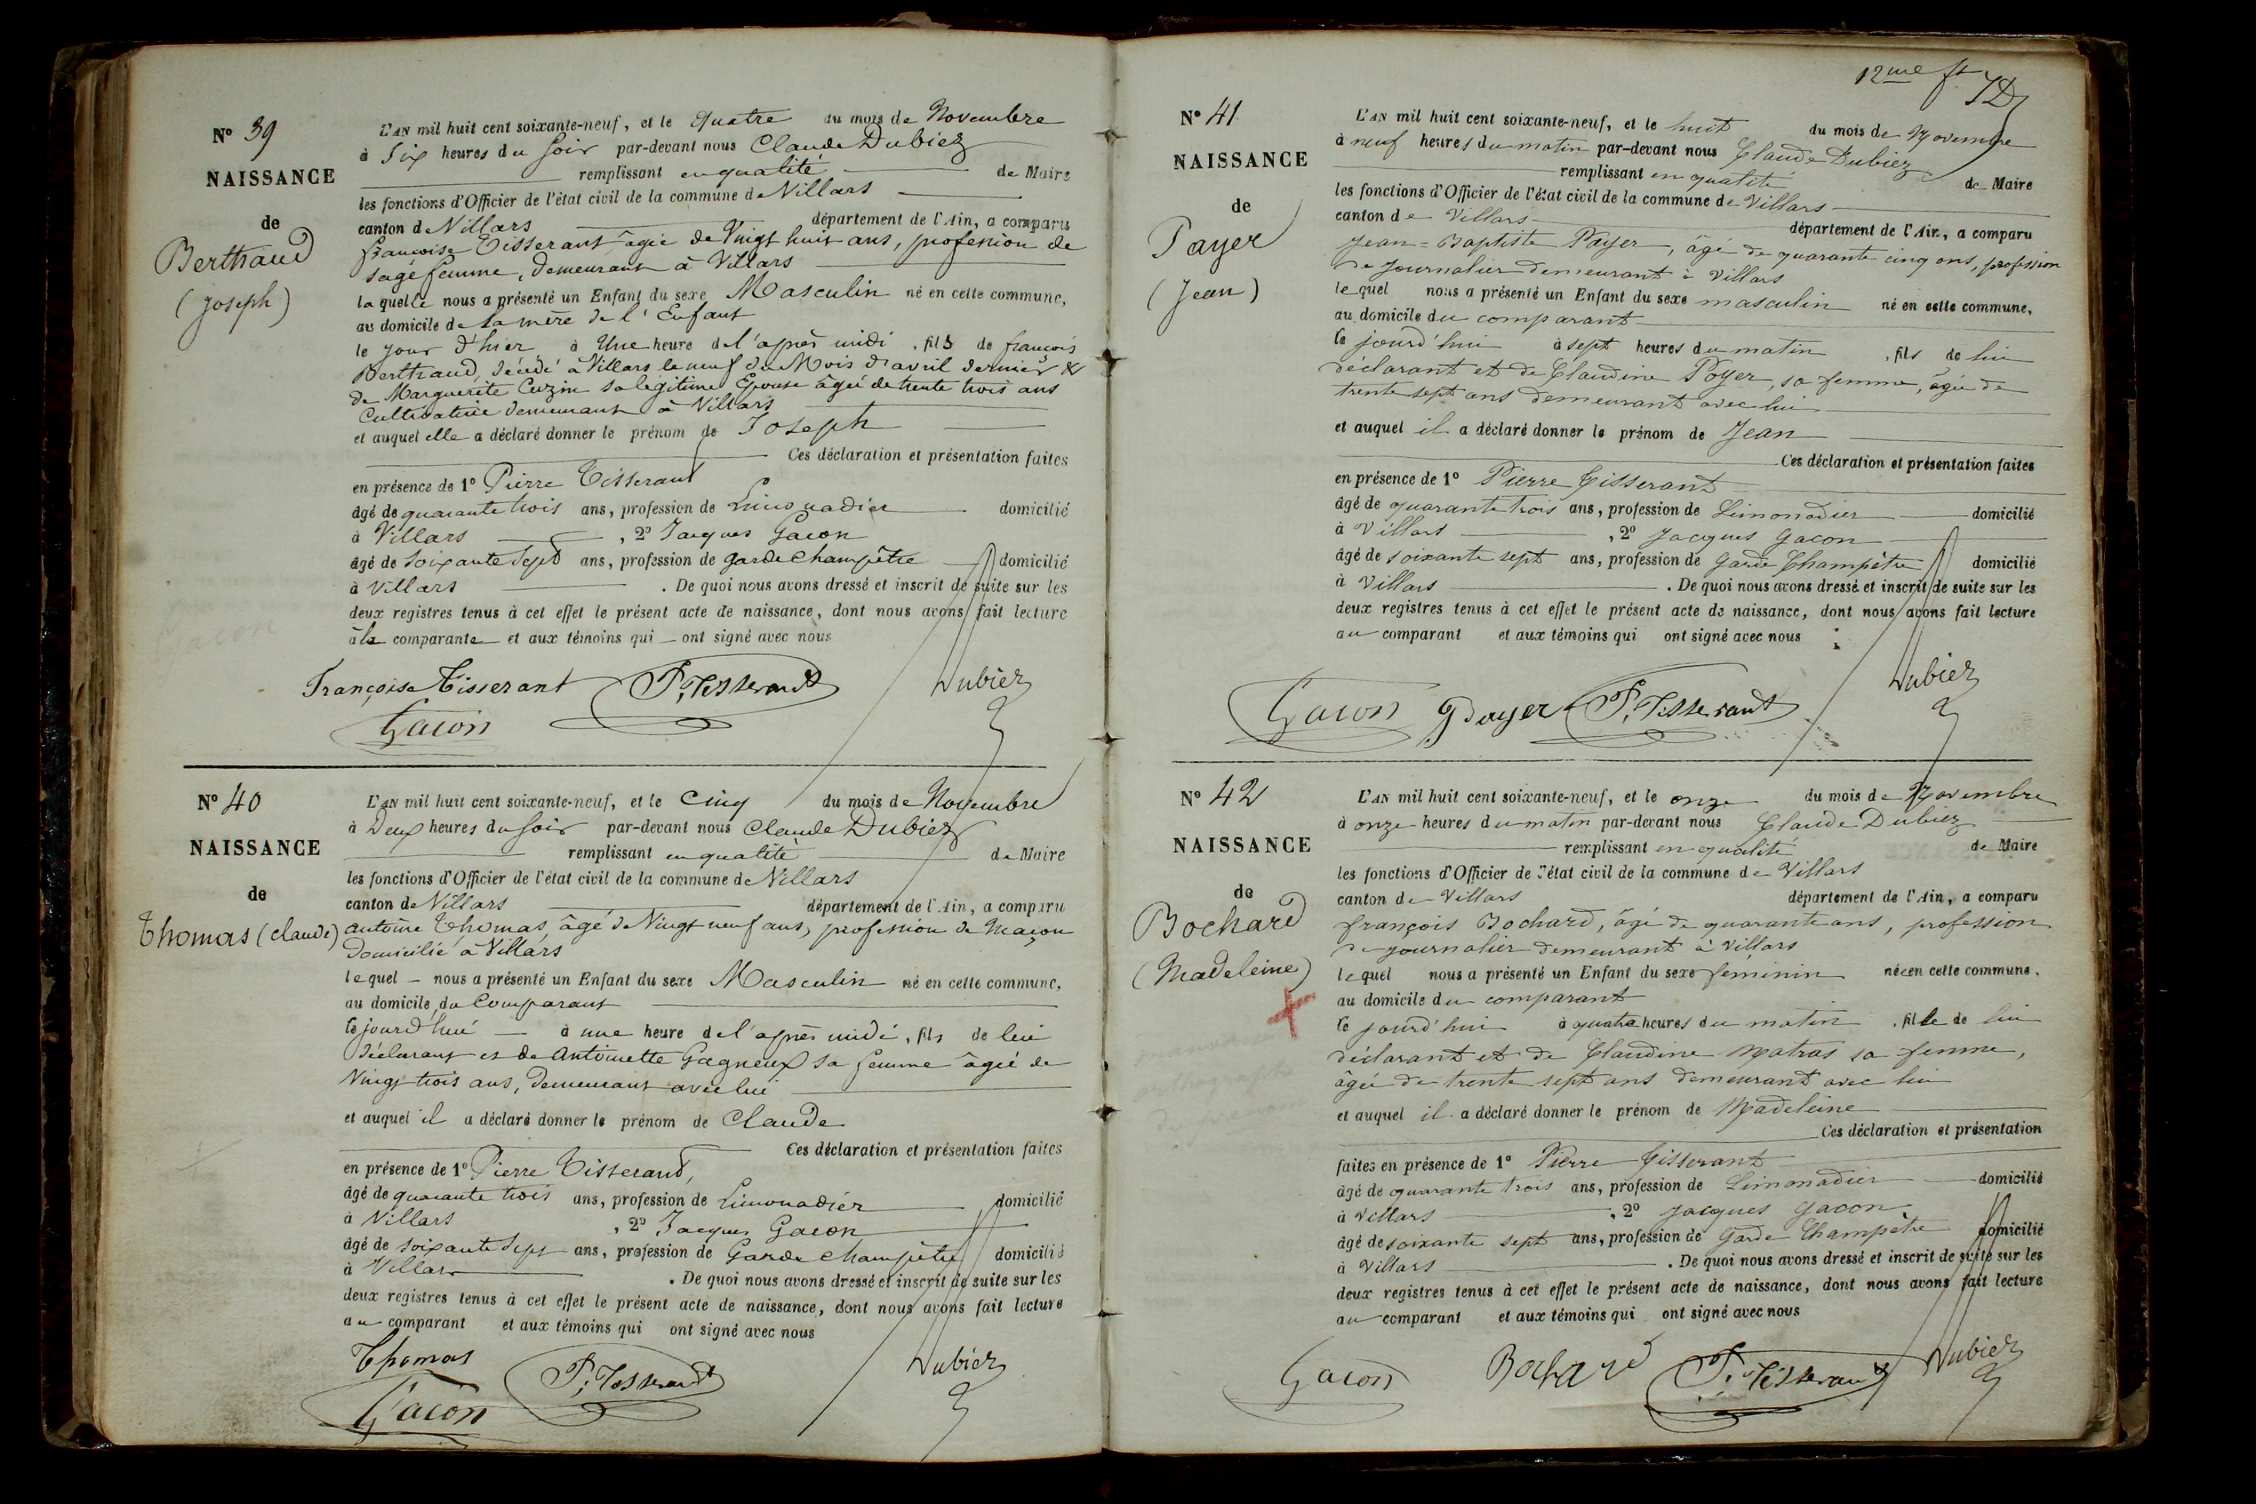 N° 39
NAISSANCE
de
Berthaud
(Joseph)
L'AN mil huit cent soixante-neuf, et le quatre du mois de Novembre
à Six heures du Soir par-devant nous Claude Dubiez
remplissant en qualité de Maire
les fonctions d'Officier de l'état civil de la commune de Villars
canton de Villars département de l'Ain, a comparu
françoise Tisserant âgée de Vingt huit ans, profession de
Sage femme, demeurant à Villars
laquelle nous a présenté un Enfant du sexe Masculin né en cette commune,
au domicile de la mère de l'Enfant
le jour d'hier à Une heure de l'après midi, fils de françois
Berthaud, décédé à Villars le neuf du Mois d'avril dernier &
de Marguerite Cuzin sa légitime Epouse âgée de trente trois ans
Cultivatrice demeurant à Villars
et auquel elle a déclaré donner le prénom de Joseph
Ces déclaration et présentation faites
en présence de 1° Pierre Tisserant
âgé de quarante trois ans, profession de Limonadier domicilié
à Villars, 2° Jacques Gacon
âgé de Soixante Sept ans, profession de garde champêtre domicilié
à Villars. De quoi nous avons dressé et inscrit de suite sur les
deux registres tenus à cet effet le présent acte de naissance, dont nous avons fait lecture
à la comparante et aux témoins qui ont signé avec nous
Françoise Tisserant P. Tisserant Dubiez
Gacon
N° 40
NAISSANCE
de
Thomas (claude)
L'AN mil huit cent soixante-neuf, et le Cinq du mois de Novembre
à Deux heures du Soir par-devant nous Claude Dubiez
remplissant en qualité de Maire
les fonctions d'Officier de l'état civil de la commune de Villars
canton de Villars département de l'Ain, a comparu
antoine Thomas, âgé de Vingt neuf ans, profession de Maçon
Domicilié à Villars
lequel nous a présenté un Enfant du sexe Masculin né en cette commune,
au domicile du Comparant
Ce jourd'hui à une heure de l'après midi, fils de lui
déclarant et de Antoinette Gagneux sa femme âgée de
Vingt trois ans, demeurant avec lui
et auquel il a déclaré donner le prénom de Claude
Ces déclaration et présentation faites
en présence de 1° Pierre Tisserand,
âgé de quarante trois ans, profession de Limonadier domicilié
à Villars, 2° Jacques Gacon
âgé de Soixante Sept ans, profession de Garde champêtre domicilié
à Villars. De quoi nous avons dressé et inscrit de suite sur les
deux registres tenus à cet effet le présent acte de naissance, dont nous avons fait lecture
au comparant et aux témoins qui ont signé avec nous
Thomas P. Tisserant Dubiez
Gacon
12me ft
N° 41
NAISSANCE
de
Payer
(Jean)
L'AN mil huit cent soixante-neuf, et le huit du mois de Novembre
à neuf heures du matin par-devant nous Claude Dubiez
remplissant en qualité de Maire
les fonctions d'Officier de l'état civil de la commune de Villars
canton de Villars département de l'Ain, a comparu
Jean-Baptiste Payer, âgé de quarante cinq ans, profession
de journalier demeurant à Villars
lequel nous a présenté un Enfant du sexe masculin né en cette commune,
au domicile du comparant
Ce jourd'hui à sept heures du matin, fils de lui
déclarant et de Claudine Poyer, sa femme, âgée de
trente sept ans demeurant avec lui
et auquel il a déclaré donner le prénom de Jean
Ces déclaration et présentation faites
en présence de 1° Pierre Tisserant
âgé de quarante trois ans, profession de Limonadier domicilié
à Villars, 2° Jacques Gacon
âgé de soixante sept ans, profession de Garde Champêtre domicilié
à Villars. De quoi nous avons dressé et inscrit de suite sur les
deux registres tenus à cet effet le présent acte de naissance, dont nous avons fait lecture
au comparant et aux témoins qui ont signé avec nous
Gacon Payer P. Tisserant Dubiez
N° 42
NAISSANCE
de
Bochard
(Madeleine)
L'AN mil huit cent soixante-neuf, et le onze du mois de Novembre
à onze heures du matin par-devant nous Claude Dubiez
remplissant en qualité de Maire
les fonctions d'Officier de l'état civil de la commune de Villars
canton de Villars département de l'Ain, a comparu
françois Bochard, âgé de quarante ans, profession
de journalier demeurant à Villars
lequel nous a présenté un Enfant du sexe féminin née en cette commune,
au domicile du comparant
Ce jourd'hui à quatre heures du matin, fille de lui
déclarant et de Claudine Matras sa femme,
âgée de trente sept ans demeurant avec lui
et auquel il a déclaré donner le prénom de Madeleine
Ces déclaration et présentation
faites en présence de 1° Pierre Tisserant
âgé de quarante trois ans, profession de Limonadier domicilié
à Villars, 2° Jacques Gacon
âgé de soixante sept ans, profession de Garde Champêtre domicilié
à Villars. De quoi nous avons dressé et inscrit de suite sur les
deux registres tenus à cet effet le présent acte de naissance, dont nous avons fait lecture
au comparant et aux témoins qui ont signé avec nous
Gacon Bochard P. Tisserant Dubiez